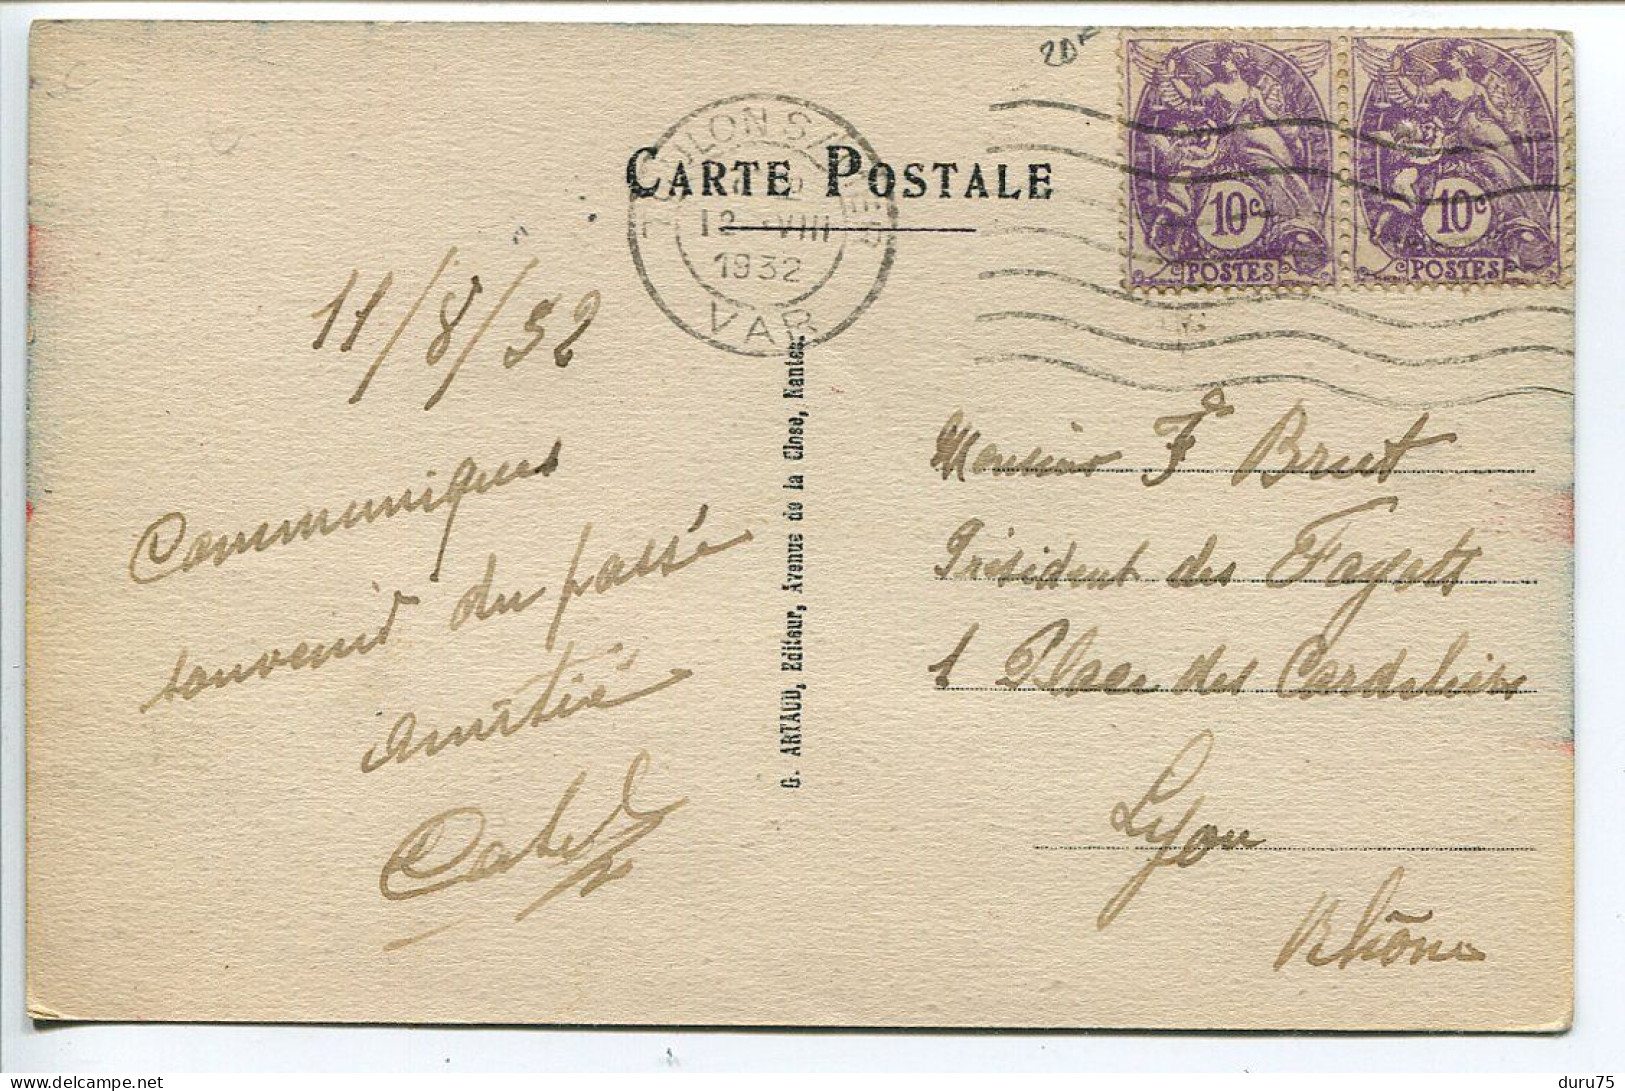 20F
CARTE POSTALE
TOULON S/MER
12 -VIII
1932
VAR
10c
POSTES
10c
POSTES
11/8/32
Communiques
souvenir du passé
amitié
G. ARTAUD, Editeur, Avenue de la Close, Nantes.
Monsieur F Brut
Président des Fayots
1 Place des Cordeliers
Lyon
Rhône
delcampe.net
duru75